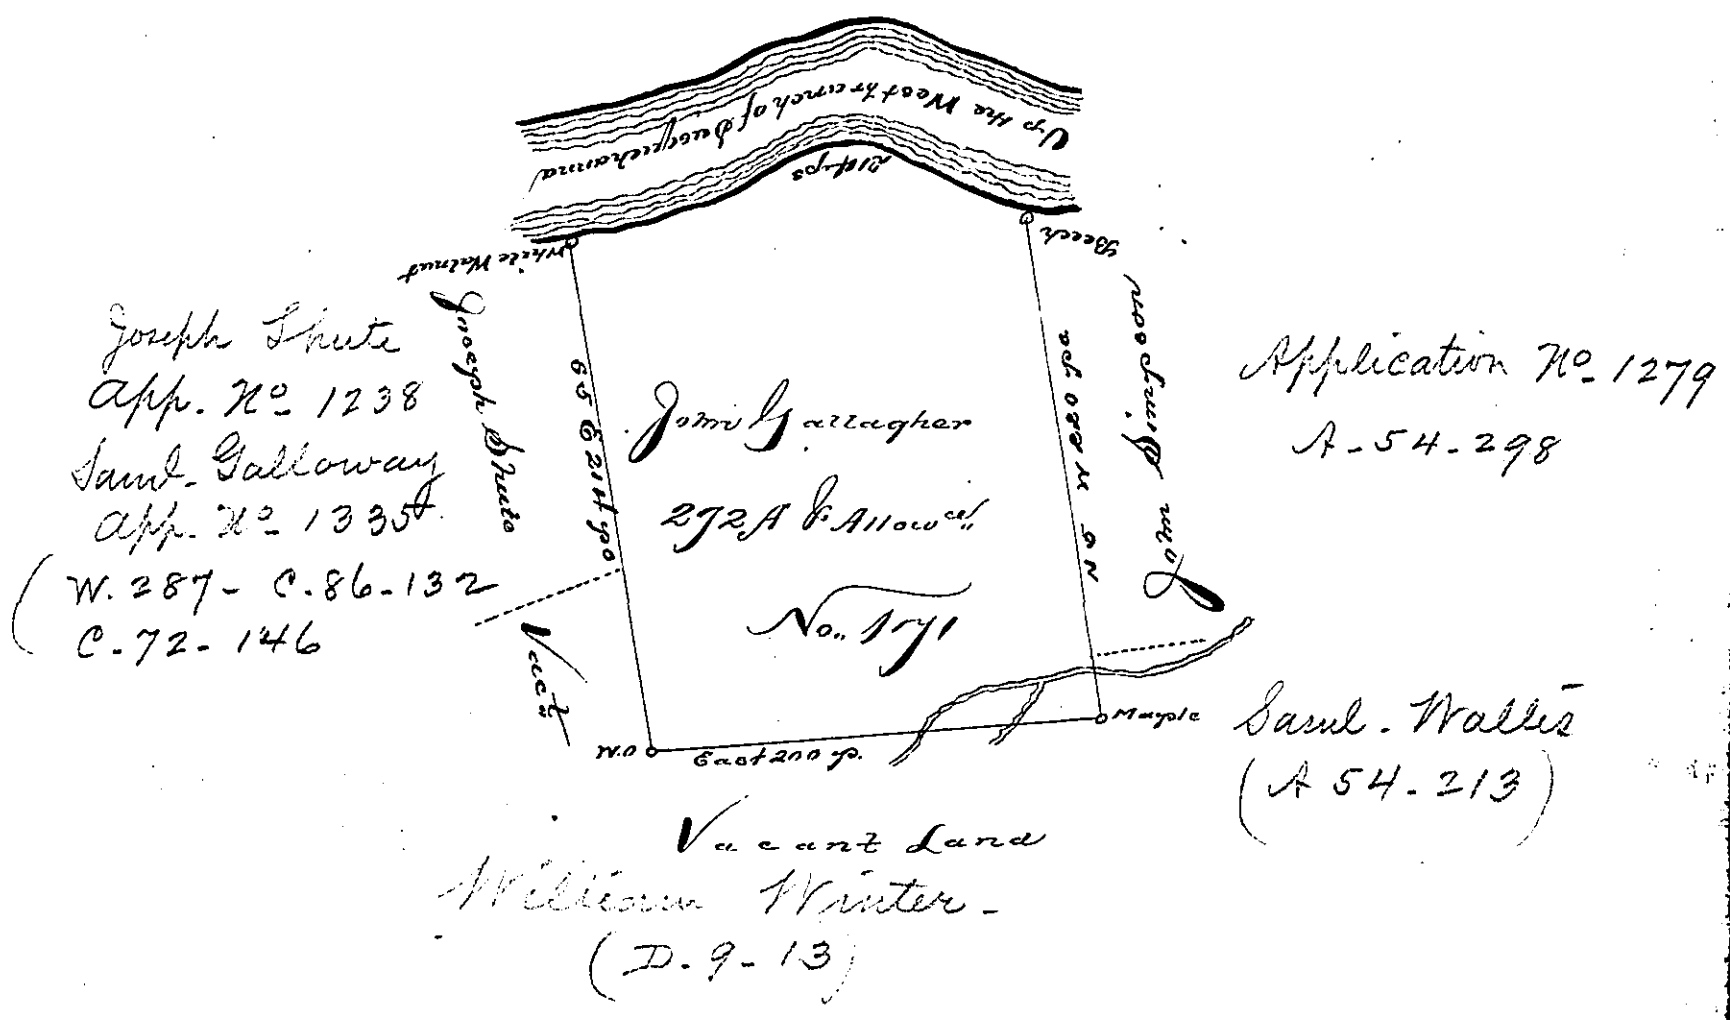 Up the West branch of Susquehanna
214 ps
White Walnut
Beech
Joseph Shute
App. No 1238
Saml. Galloway
App. No 1335
(W. 287 - C. 86 - 132
C. 72 - 146
Joseph Shute
John Gallagher
272 A & Allow ce
No. 1771
John
Application No 1279
A - 54 - 298
Vact.
W.O
East 200 p.
Maple
Saml. Wallis
(A 54 - 213)
Vacant Land
William Winter -
(D. 9 - 13)